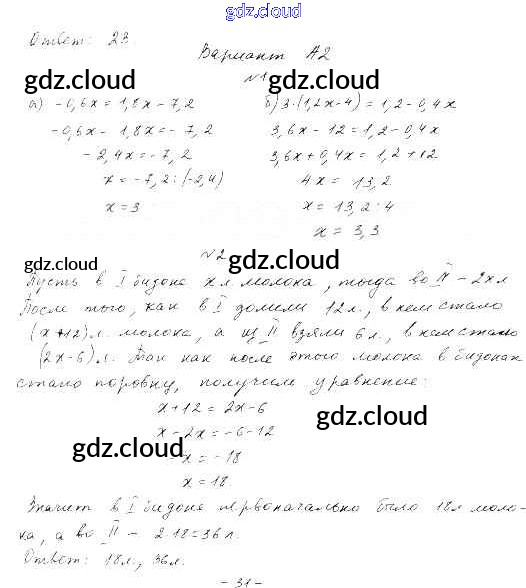 gdz.cloud
Ответ: 23.
Вариант А2
gdz.cloud
№1
gdz.cloud
а) -0,6x = 1,8x - 7,2
-0,6x - 1,8x = -7,2
-2,4x = -7,2
x = -7,2 : (-2,4)
x = 3
б) 3·(1,2x-4) = 1,2-0,4x
3,6x - 12 = 1,2 - 0,4x
3,6x + 0,4x = 1,2 + 12
4x = 13,2
x = 13,2 : 4
x = 3,3
№2
gdz.cloud
gdz.cloud
Пусть в I бидоне x л молока, тогда во II - 2x л
После того, как в I долили 12 л., в нем стало
(x+12) л. молока, а из II взяли 6 л., в нем стало
(2x-6) л. Так как после этого молока в бидонах
стало поровну, получим уравнение:
x+12 = 2x-6
gdz.cloud
x-2x = -6-12
gdz.cloud
-x = -18
x = 18
Значит в I бидоне первоначально было 18 л моло-
ка, а во II - 2·18=36 л.
Ответ: 18 л., 36 л.
- 31 -